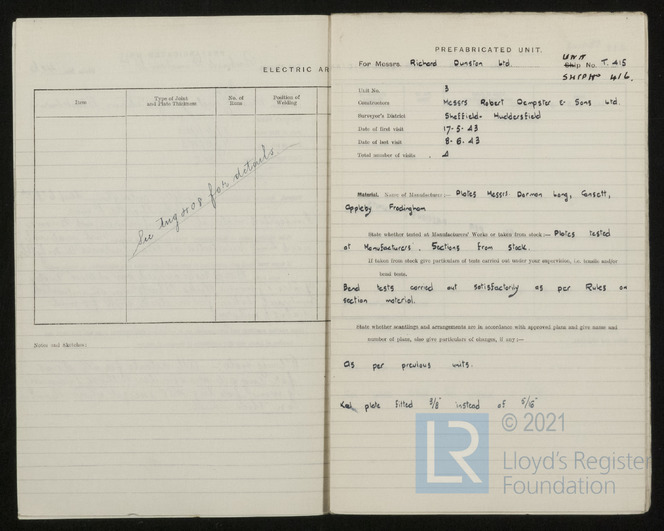 ELECTRIC AR
Item
Type of Joint and Plate Thickness
No. of Runs
Position of Welding
See Tug for details.
Notes and Sketches:
PREFABRICATED UNIT.
UNIT
For Messrs. Richard Dunston Ltd. Ship No. T. 415
SHIP No 416.
Unit No. 3
Constructors Messrs Robert Dempster & Sons Ltd.
Surveyor's District Sheffield- Huddersfield
Date of first visit 17-5-43
Date of last visit 8-6-43
Total number of visits 4
Material. Name of Manufacturer:- Plates Messrs. Dorman Long, Consett,
Appleby Frodingham
State whether tested at Manufacturers' Works or taken from stock:- Plates tested
at Manufacturers. Sections from stock.
If taken from stock give particulars of tests carried out under your supervision, i.e. tensile and/or
bend tests.
Bend tests carried out satisfactorily as per Rules on
section material.
State whether scantlings and arrangements are in accordance with approved plans and give name and
number of plans, also give particulars of changes, if any:-
As per previous units.
Keel plate fitted 3/8" instead of 5/16"
LR
© 2021
Lloyd's Register
Foundation